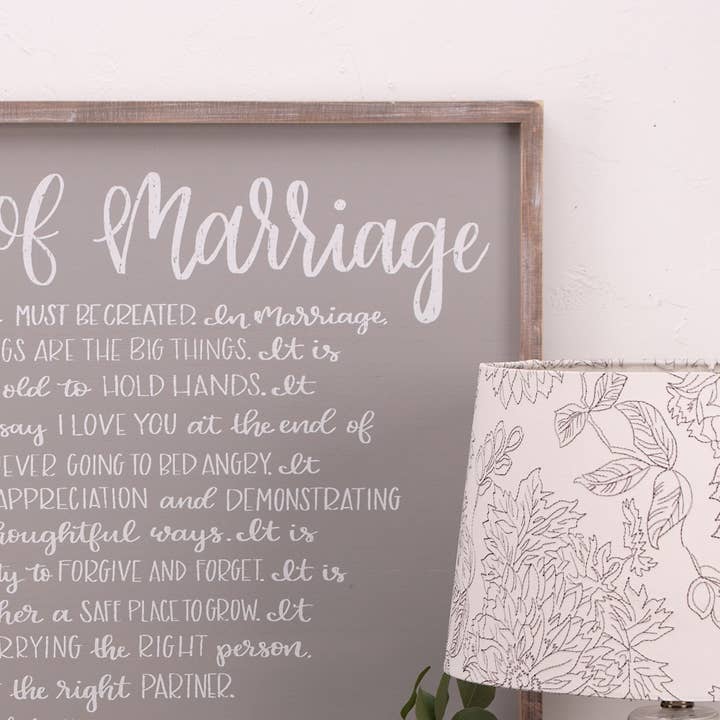 of Marriage
MUST BE CREATED. In Marriage,
GS ARE THE BIG THINGS. It is
old to HOLD HANDS. It
say I LOVE YOU at the end of
EVER GOING TO BED ANGRY. It
APPRECIATION and DEMONSTRATING
houghtful ways. It is
ty to FORGIVE AND FORGET. It is
her a SAFE PLACE TO GROW. It
RRYING the RIGHT person,
the right PARTNER.